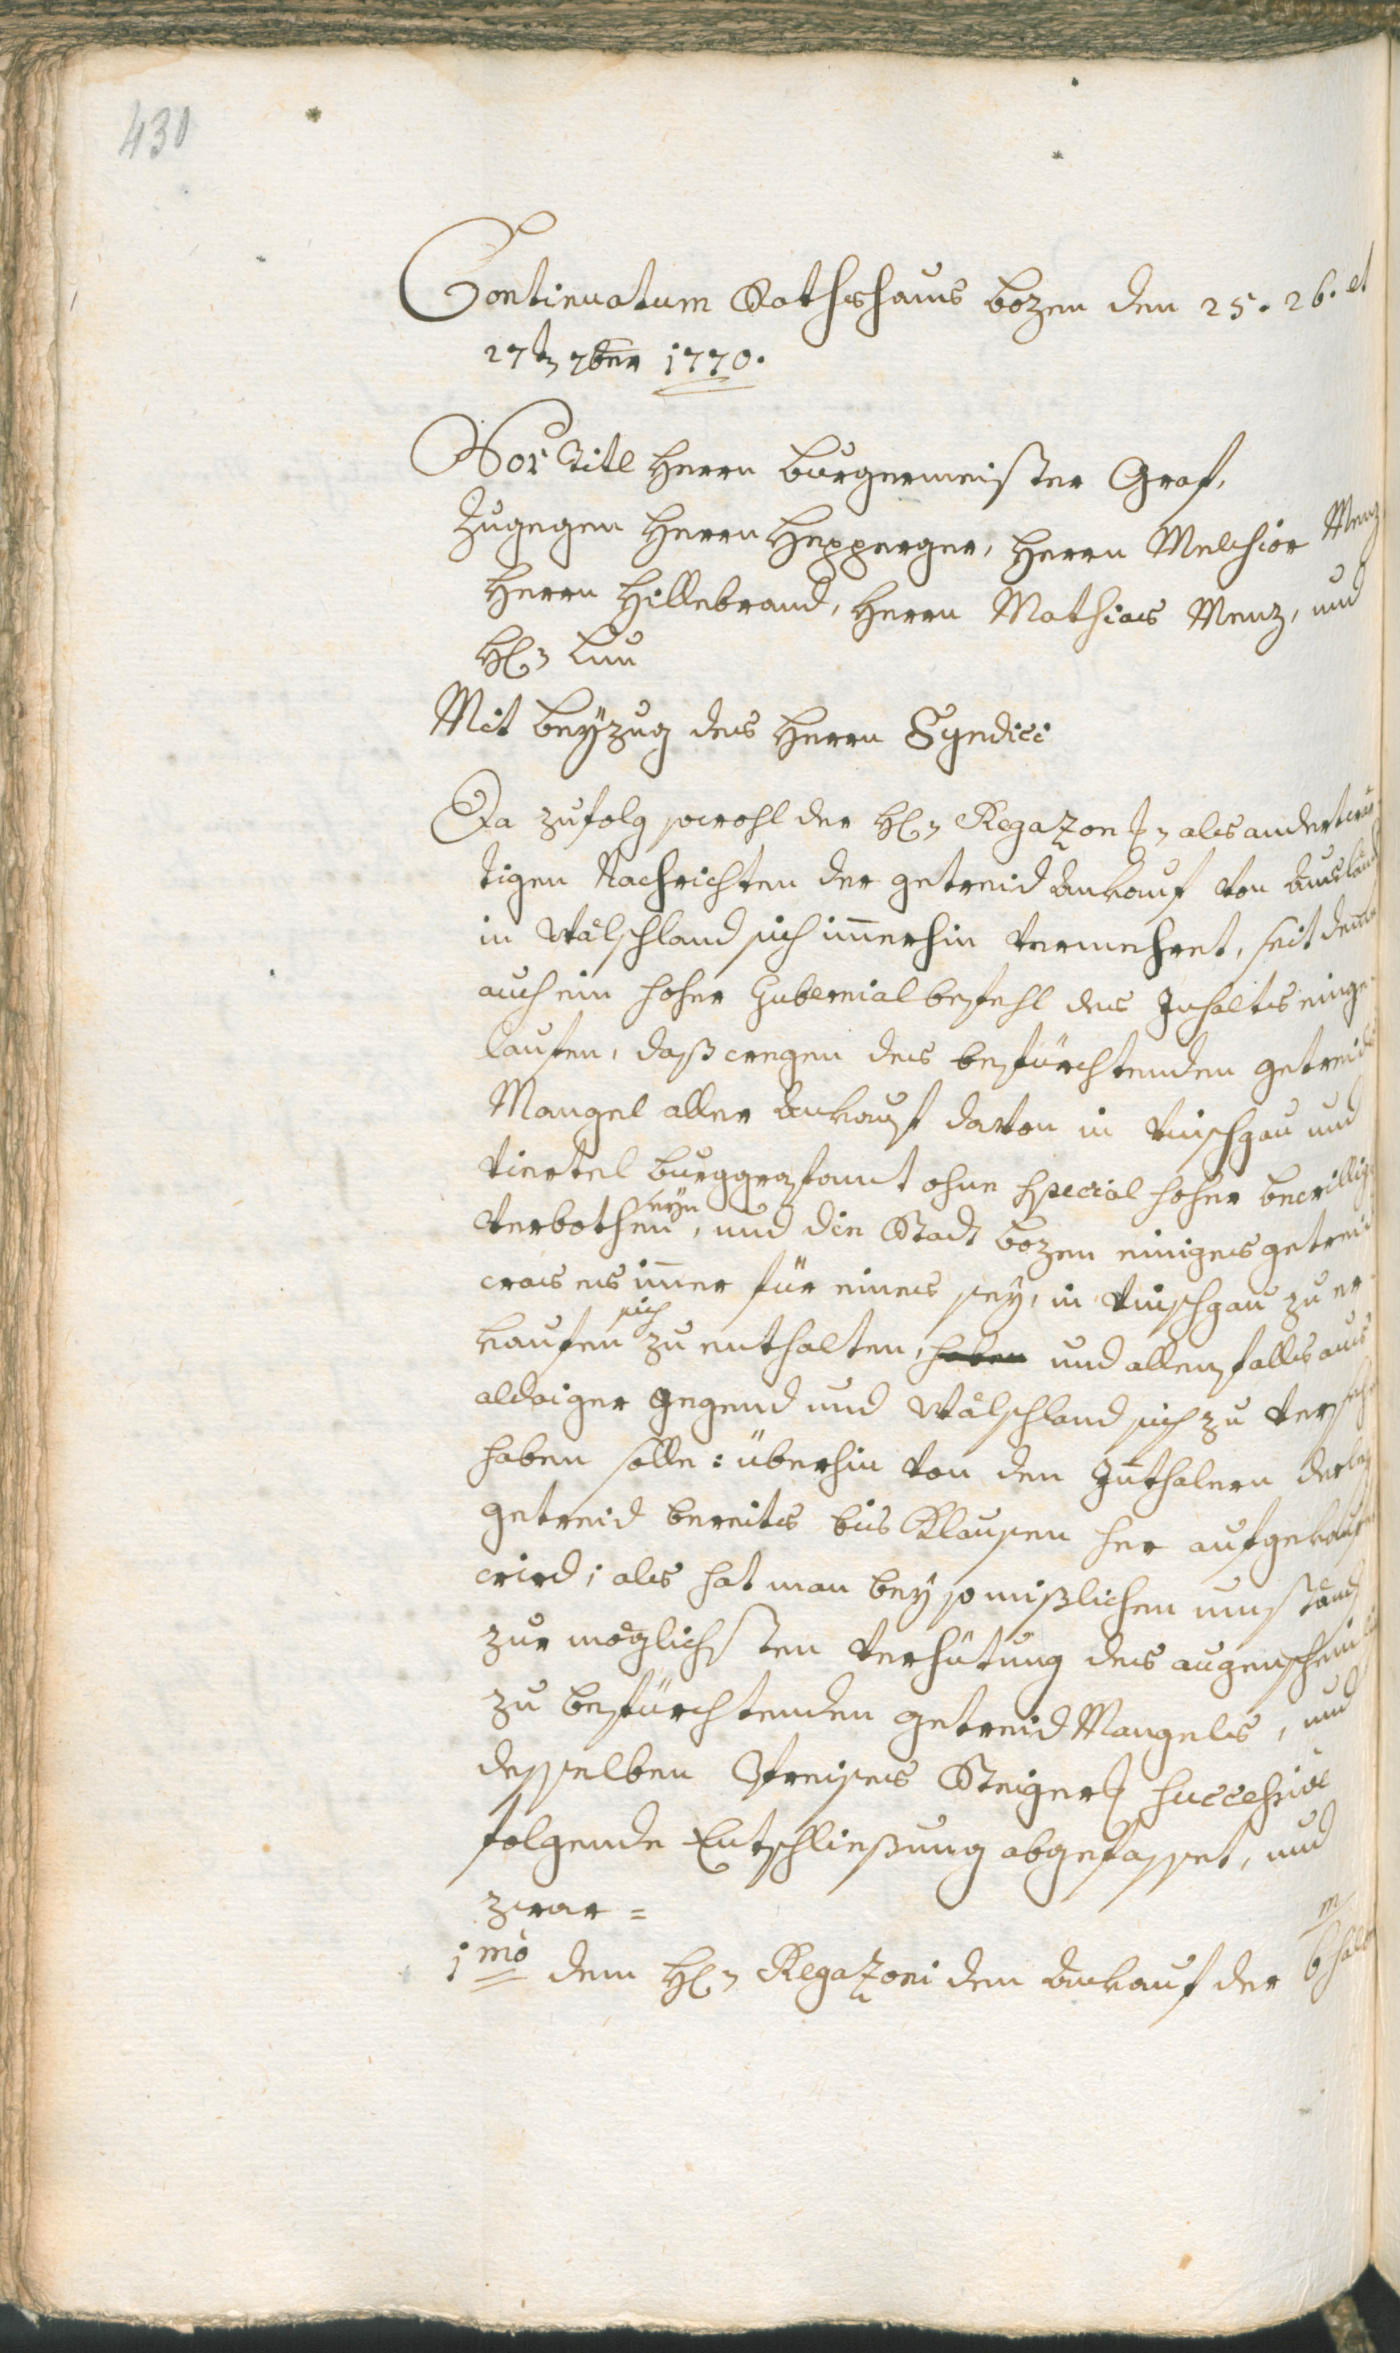 430
Continuatum Rathshaus bozen den 25. 26. et
27tn 7ber 1770.
Vor Titl Herrn burgermeister Graf,
Zugegen Herrn Hepperger, Herrn Melchior Menz
Herrn Hillebrand, Herrn Mathias Menz, und
H: Lun
Mit beÿzug des Herrn Syndici
Da zufolg sowohl der H: Regazonis: als anderwer-
tigen Nachrichten der getreid Ankauf von Ausländ
in Wälschland sich immerhin vermehret, seit deme
auch ein hoher Gubernial befehl des Inhalts einge-
laufen, daß wegen des befürchtenden getreid
Mangel aller Ankauf davon in Vinschgau und
Viertel burggrafamt ohne special hoher bewillig
verbothen seyn, und die Stadt bozen einiges getreid
was es immer für eines seÿ, in Vinschgau zu er-
kaufen sich zu enthalten, haben und allenfalls aus
aldaiger gegend und Wälschland sich zu verseh
haben solle: überhin von den Innthalern derley
getreid bereits bis Klausen her aufgekauft
wird; als hat man beÿ so mißlichen umständ
zur möglichsten Verhütung des augenschein
zu befürchtenden getreid Mangels, und
desselben Preises Steiger: successive
folgende Entschließung abgefasset, und
zwar =
1mo dem H: Regazoni den Ankauf der 6